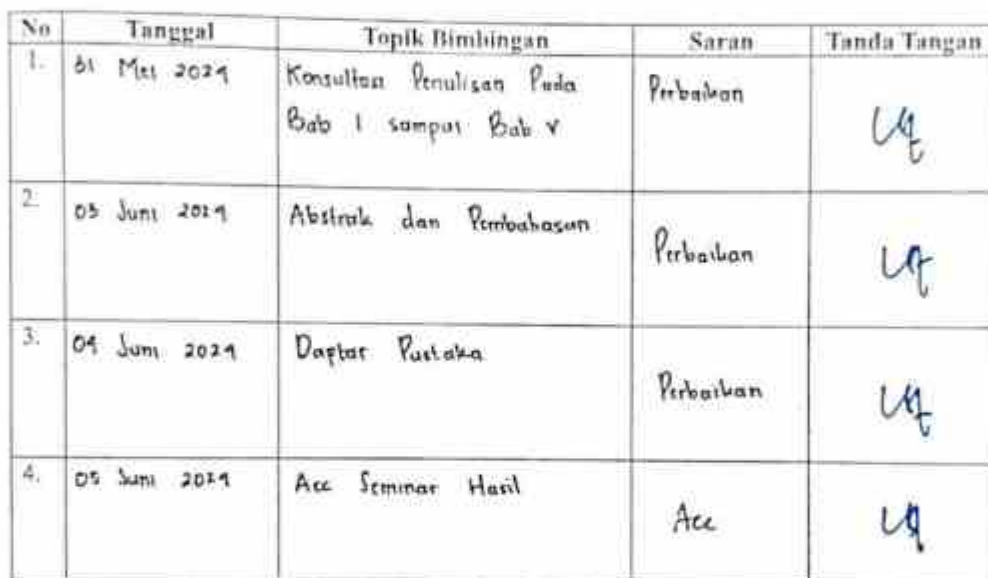 No Tanggal Topik Bimbingan Saran Tanda Tangan
1. 31 Mei 2024 Konsultasi Penulisan Pada Perbaikan
Bab I sampai Bab V
2. 03 Juni 2024 Abstrak dan Pembahasan Perbaikan
3. 04 Juni 2024 Daptar Pustaka Perbaikan
4. 05 Juni 2024 Acc Seminar Hasil Acc